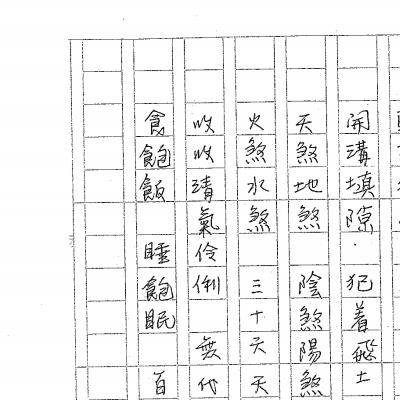 開溝填隙.犯着飛土
天煞地煞 陰煞陽煞
火煞水煞 三十天天
收收清氣伶俐 無代
食飽飯 睡飽眠 百